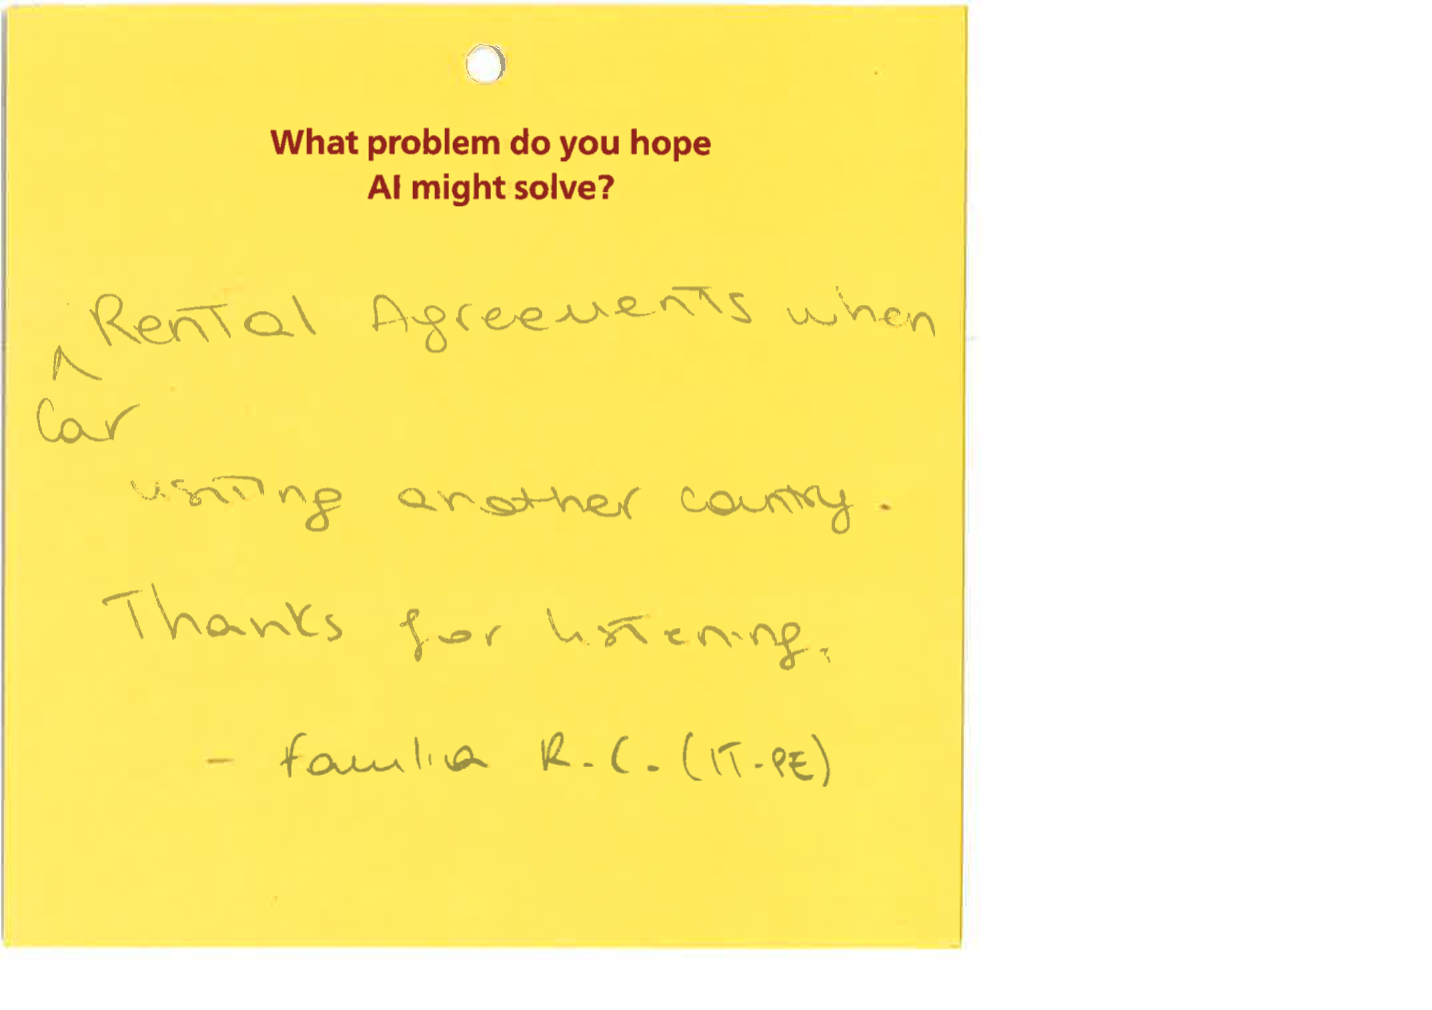 What problem do you hope
AI might solve?
Rental Agreements when
^
Car
visiting another country.
Thanks for listening.
- familia R.C. (IT-PE)